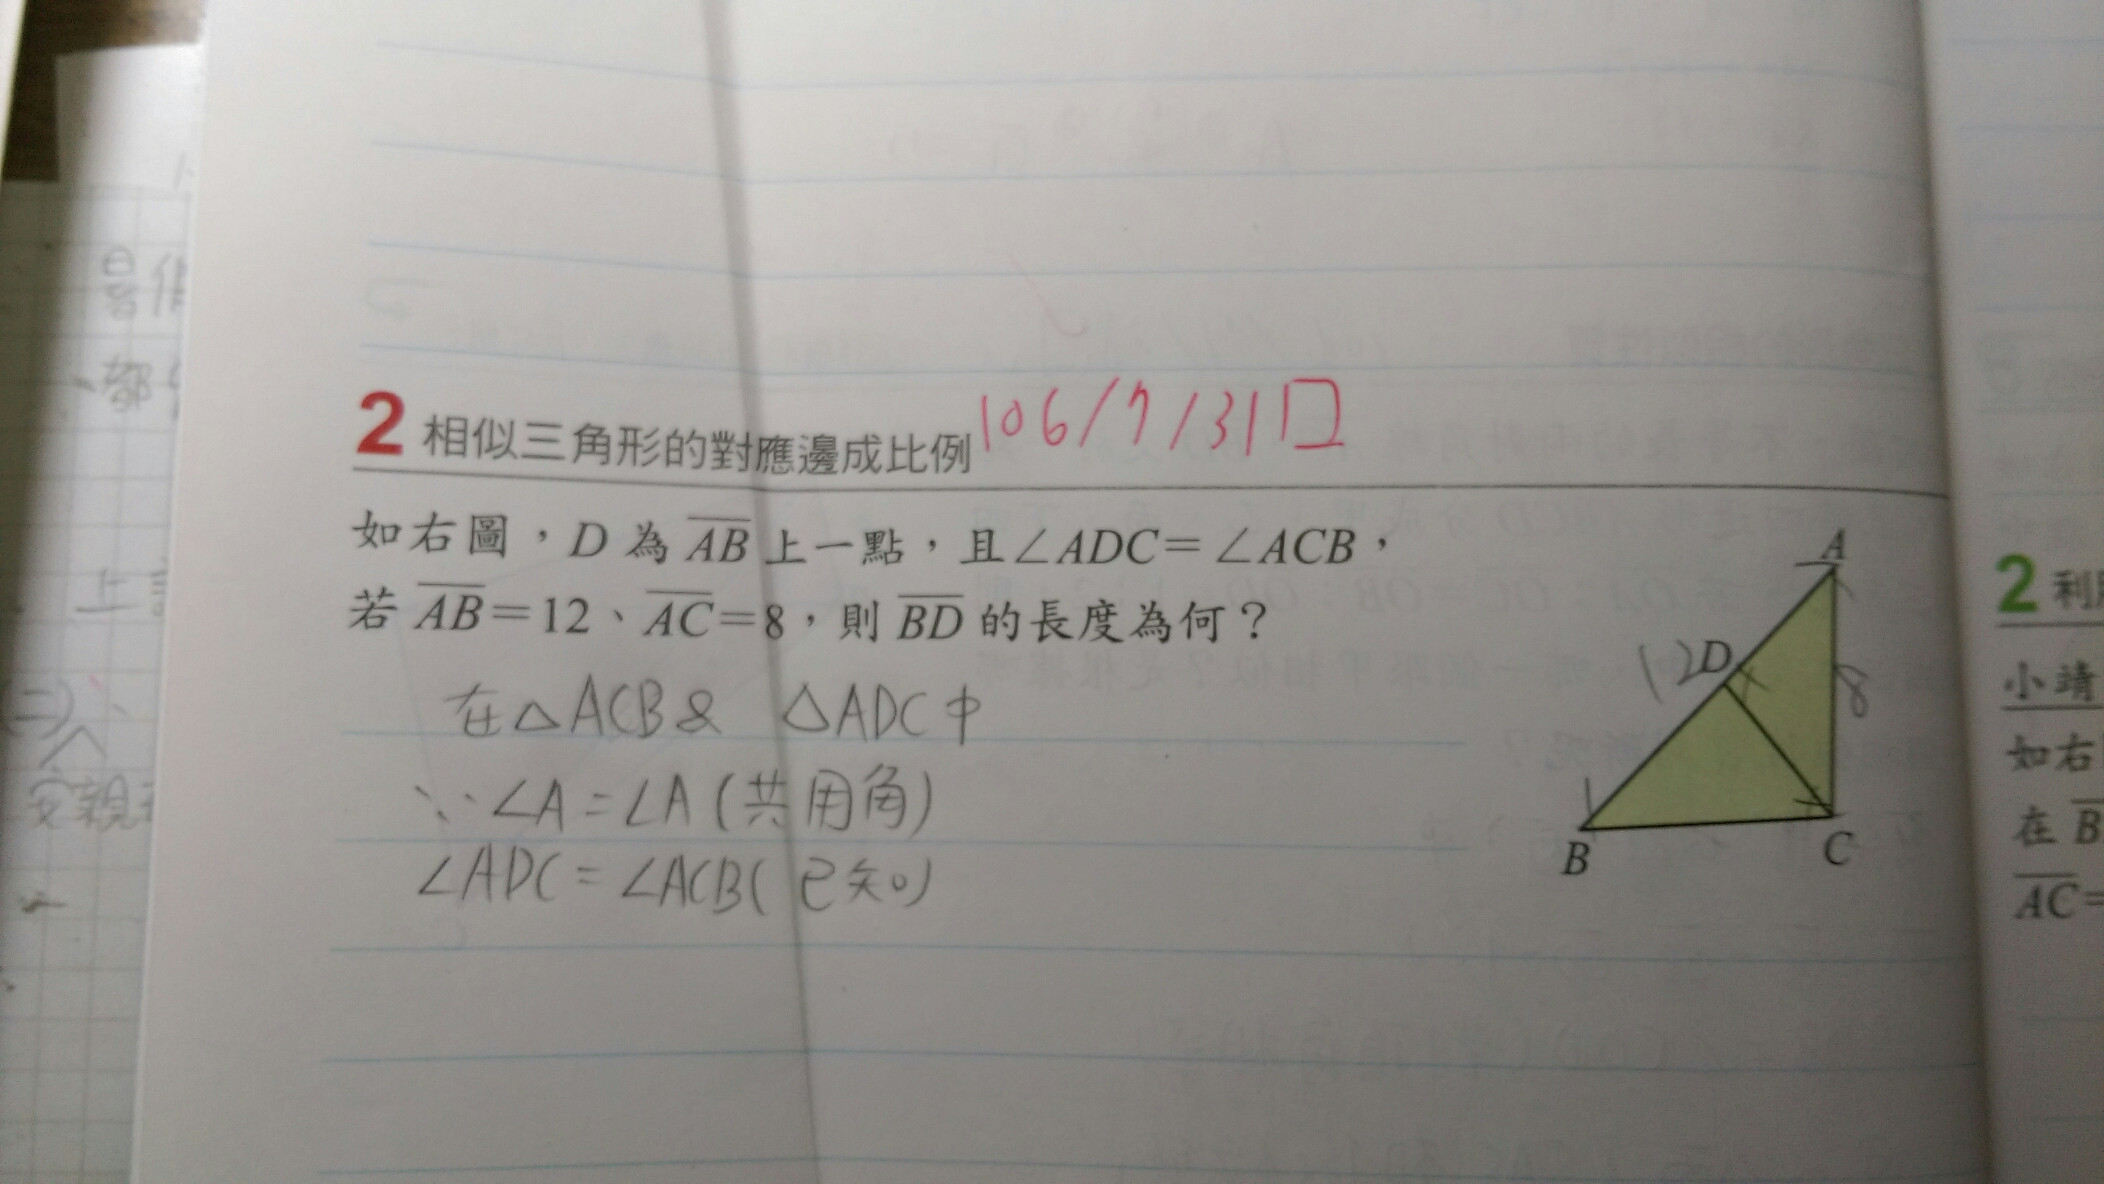 2 相似三角形的對應邊成比例 106/7/31
如右圖，D 為 AB 上一點，且∠ADC＝∠ACB，
若 AB＝12、AC＝8，則 BD 的長度為何？
在△ACB & △ADC中
∵∠A=∠A(共用角)
∠ADC=∠ACB(已知)
A
12 D
8
B
C
2 利
小靖
如右
在 B
AC=
上
(二)
父親